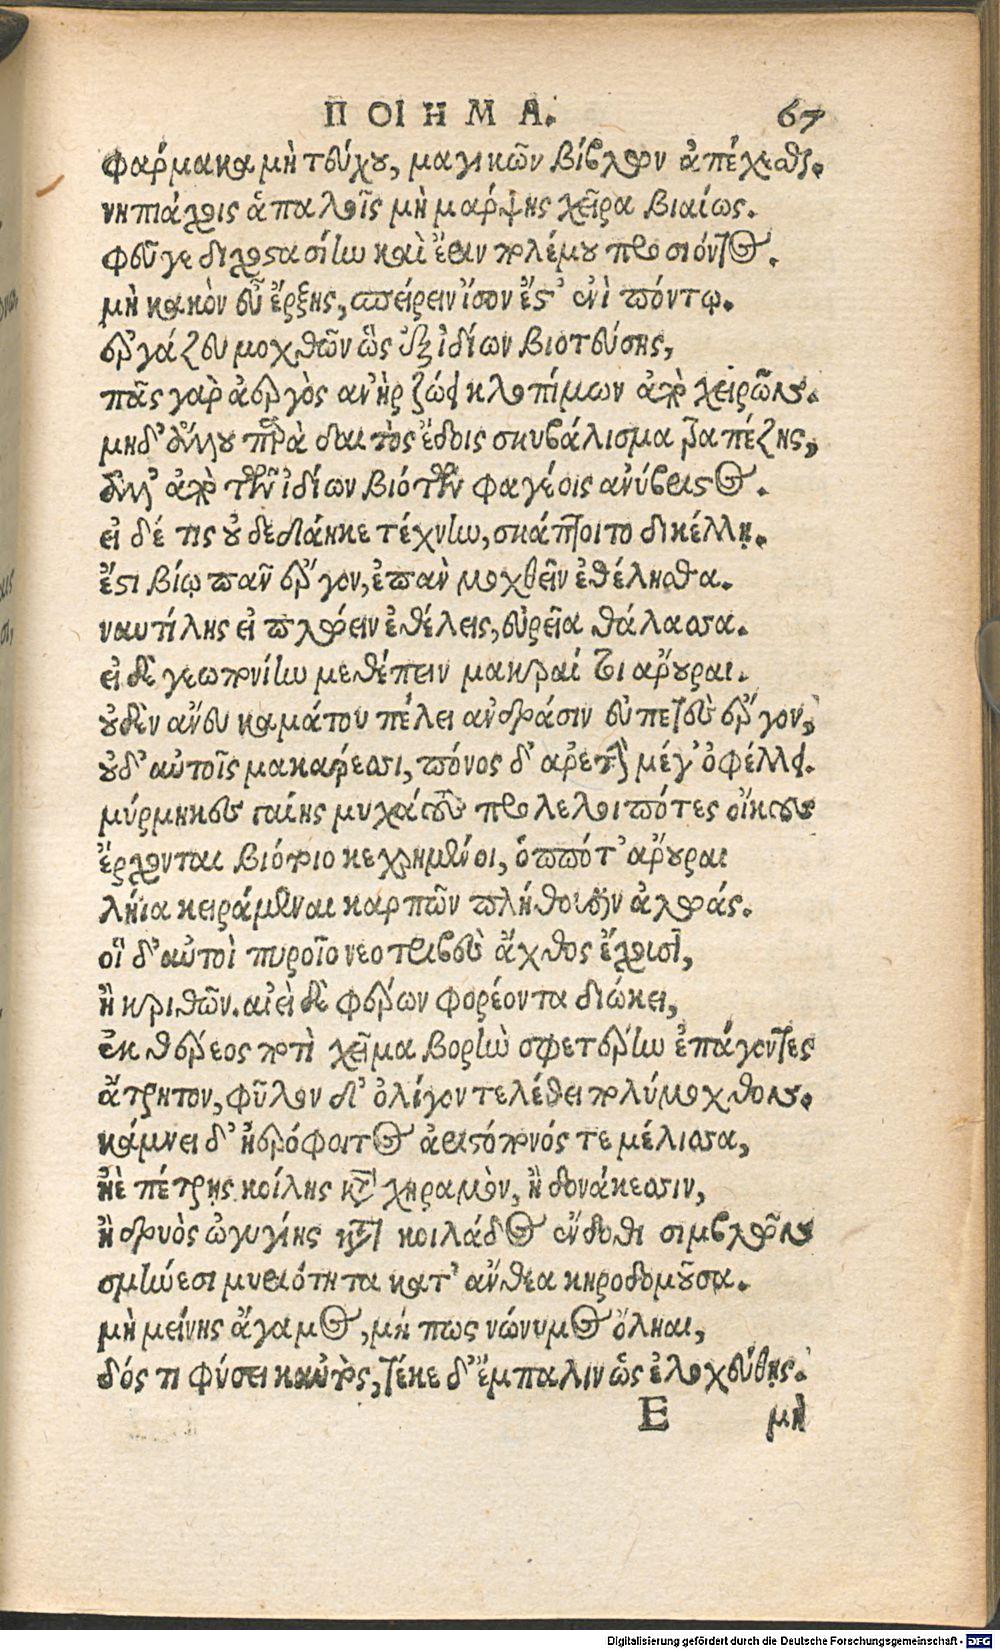 ΠΟΙΗΜΑ. 67
φάρμακα μὴ τεύχου, μαγικῶν βίβλων ἀπέχεσθαι.
νηπιάχοις ἁπαλοῖς μὴ μάρψῃς χεῖρα βιαίως.
φεῦγε διχοστασίην καὶ ἔριν πολέμου προσιόντος.
μὴ κακὸν εὖ ἔρξῃς, σπείρειν ἴσον ἔστ' ἐνὶ πόντῳ.
ἐργάζευ μοχθῶν ὡς ἐξ ἰδίων βιοτεύσῃς,
πᾶς γὰρ ἀεργὸς ἀνὴρ ζώει κλοπίμων ἀπὸ χειρῶν.
μηδ' ἄλλου παρὰ δαιτὸς ἔδοις σκυβάλισμα τραπέζης,
ἀλλ' ἀπὸ τῶν ἰδίων βιότων φαγέοις ἀνύβριστος.
εἰ δέ τις οὐ δεδάηκε τέχνην, σκάπτοιτο δικέλλῃ.
ἔστι βίῳ πᾶν ἔργον, ἐπὰν μοχθεῖν ἐθέλησθα.
ναυτίλης εἰ πλώειν ἐθέλεις, εὐρεῖα θάλασσα.
εἰ δὲ γεωπονίην μεθέπειν μακραί τοι ἄρουραι.
οὐδὲν ἄνευ καμάτου πέλει ἀνδράσιν εὐπετὲς ἔργον,
οὐδ' αὐτοῖς μακάρεσσι, πόνος δ' ἀρετὴν μέγ' ὀφέλλει.
μύρμηκες γαίης μυχάτους προλελοιπότες οἴκους
ἔρχονται βιότοιο κεχρημένοι, ὁππότ' ἄρουραι
λήια κειράμεναι καρπῶν πλήθουσιν ἀλωάς.
οἳ δ' αὐτοὶ πυροῖο νεοτριβὲς ἄχθος ἔχουσι,
ἢ κριθῶν. αἰεὶ δὲ φέρων φορέοντα διώκει,
ἐκ θέρεος ποτὶ χεῖμα βορὴν σφετέρην ἐπάγοντες
ἄτρητον, φῦλον δ' ὀλίγον τελέθει πολύμοχθον.
κάμνει δ' ἠερόφοιτος ἀριστόπονός τε μέλισσα,
ἠὲ πέτρης κοίλης κατὰ χηραμὸν, ἢ δονάκεσσιν,
ἢ δρυὸς ὠγυγίης κατὰ κοιλάδος ἔνδοθι σίμβλων
σμήνεσι μυριότρητα κατ' ἄνθεα κηροδομοῦσα.
μὴ μείνῃς ἄγαμος, μή πως νώνυμος ὄληαι,
δός τι φύσει καὐτὸς, τέκε δ' ἔμπαλιν ὡς ἐλοχεύθης.
E μὴ
Digitalisierung gefördert durch die Deutsche Forschungsgemeinschaft - DFG